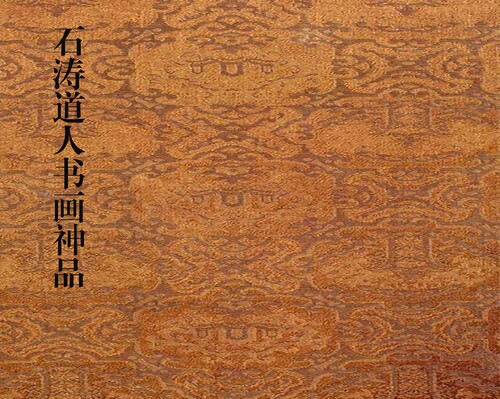 石涛道人书画神品